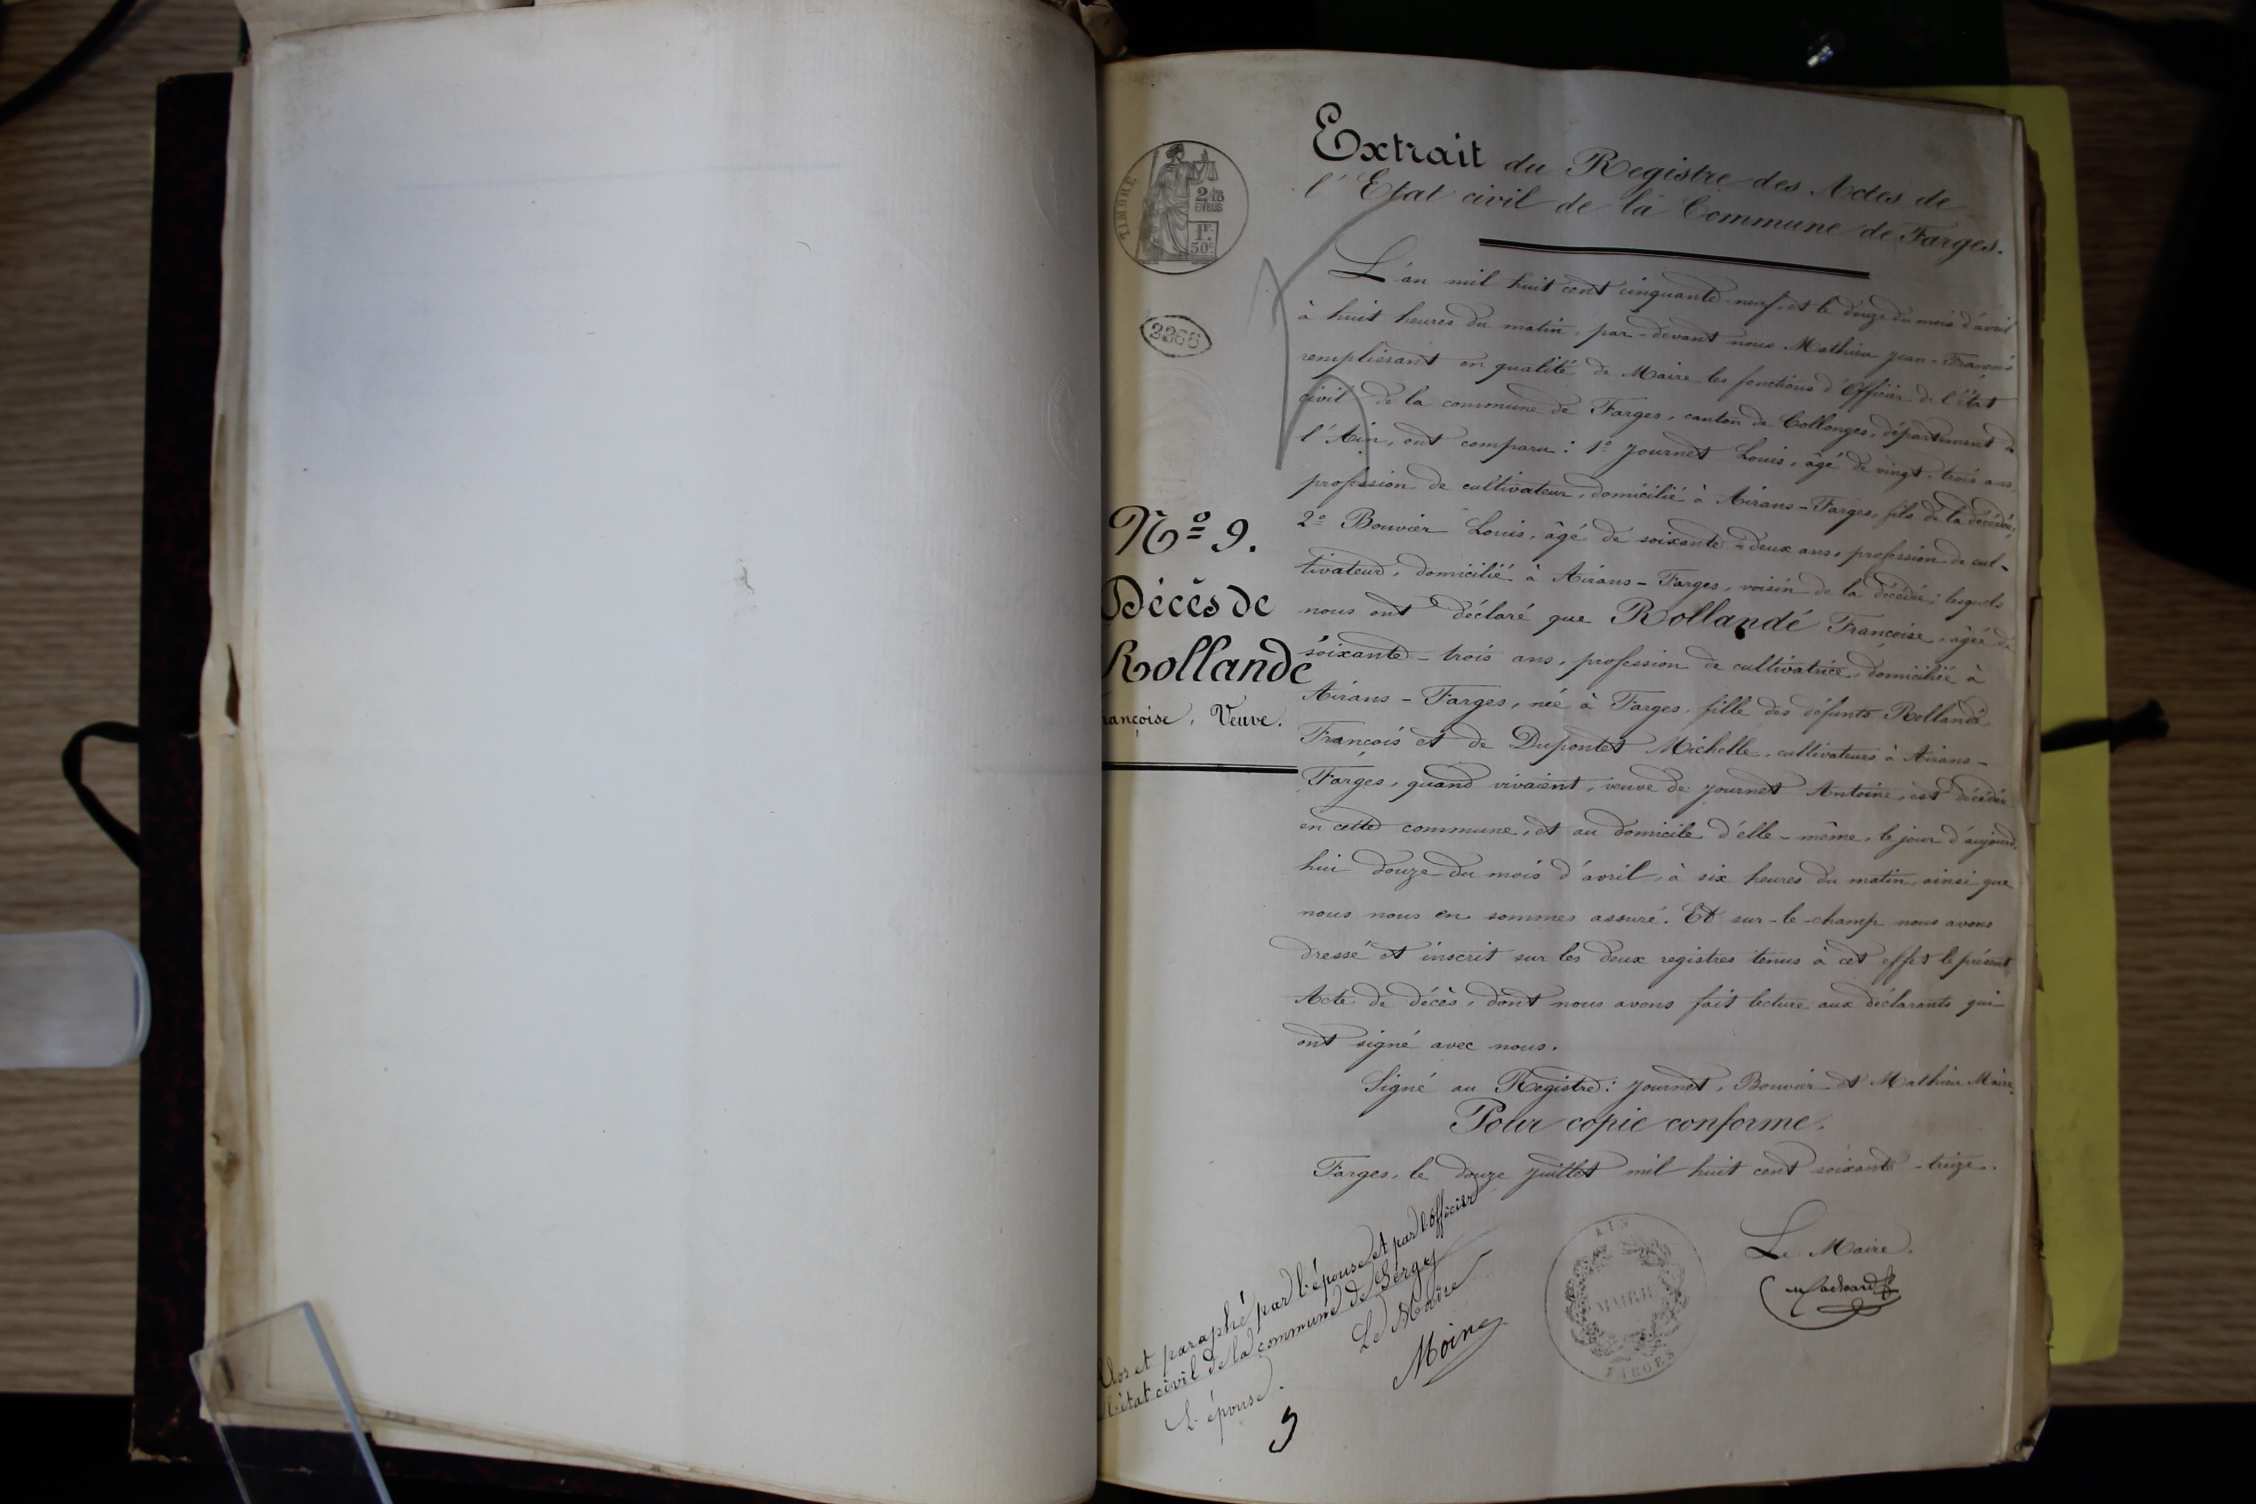 Extrait du Registre des Actes de
l'Etat civil de la Commune de Farges.
TIMBRE
2/10
EN SUS
1F.
50c
2266
L'an mil huit cent cinquante-neuf et le douze du mois d'avril
à huit heures du matin, par-devant nous Mathieu Jean-François
remplissant en qualité de Maire les fonctions d'Officier de l'état
civil de la commune de Farges, canton de Collonges, département de
l'Ain, ont comparu : 1º Journet Louis, âgé de vingt-trois ans,
profession de cultivateur, domicilié à Airans-Farges, fils de la décédée;
2º Bouvier Louis, âgé de soixante-deux ans, profession de cul-
tivateur, domicilié à Airans-Farges, voisin de la décédée; lesquels
nous ont déclaré que Rollandé Françoise, âgée de
soixante-trois ans, profession de cultivatrice, domiciliée à
Airans-Farges, née à Farges, fille des défunts Rollandé
François et de Dupontet Michelle, cultivateurs à Airans-
Farges, quand vivaient, veuve de Journet Antoine, est décédée
en cette commune, et au domicile d'elle-même, le jour d'aujourd'
hui douze du mois d'avril, à six heures du matin, ainsi que
nous nous en sommes assuré. Et sur-le-champ nous avons
dressé et inscrit sur les deux registres tenus à cet effet le présent
Acte de décès, dont nous avons fait lecture aux déclarants qui
ont signé avec nous.
Signé au Registre : Journet, Bouvier et Mathieu Maire
Pour copie conforme.
Farges, le douze Juillet mil huit cent soixante-treize.
Le Maire.
Nº 9.
Décès de
Rollandé
rançoise, Veuve.
Clos et paraphé par l'épouse et par l'officier
l'état civil de la commune de Sergy
L'épouse.
Le Maire
Moine
AIN
MAIRIE
FARGES